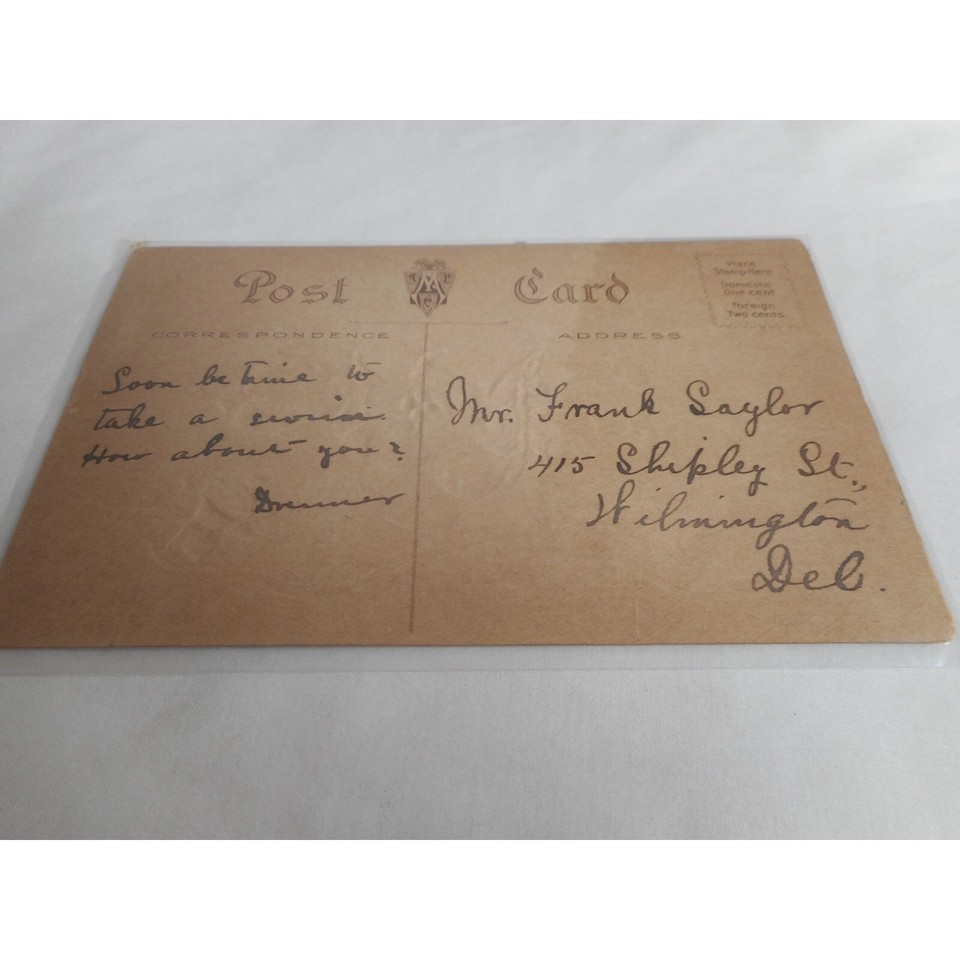 Post Card
Place
Stamp Here
Domestic
One cent
Foreign
Two cents
CORRESPONDENCE
ADDRESS
Soon be time to
take a
How about you?
Mr. Frank Saylor
415 Shipley St.,
Wilmington
Del.